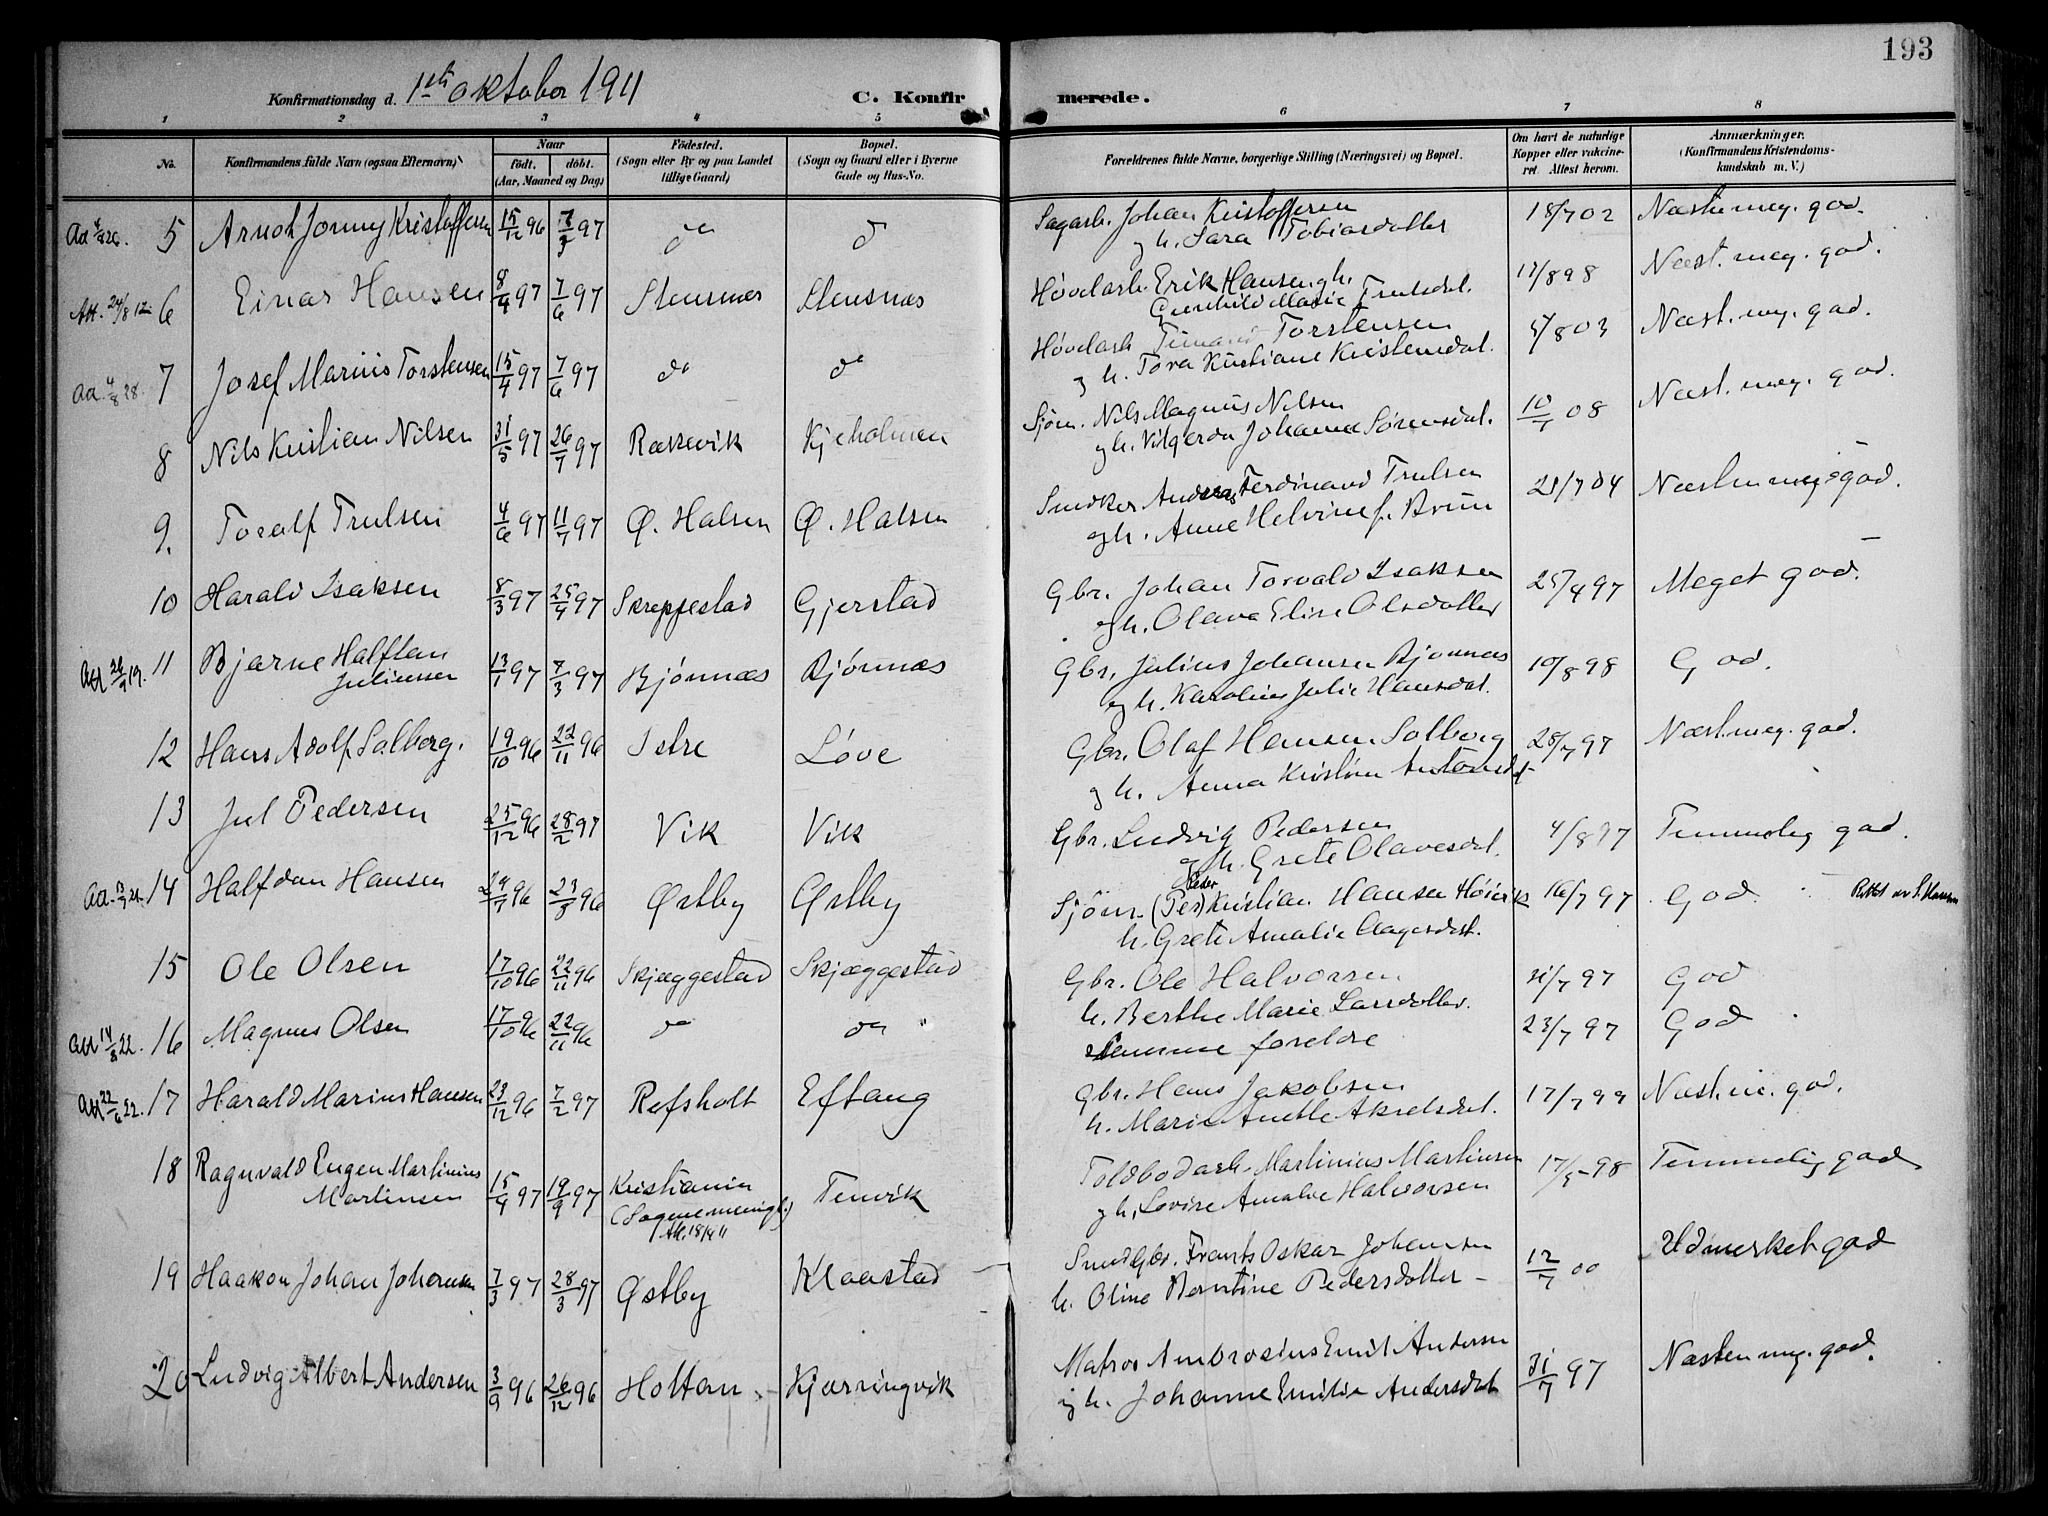 193
Konfirmationsdag d. 1ste oktober 1911
C. Konfirmerede.
1 2 3 4 5 6 7 8
No.
Konfirmandens fulde Navn (ogsaa Efternavn)
Naar
født. døbt.
(Aar, Maaned og Dag)
Fødested.
(Sogn eller By og paa Landet
tillige Gaard)
Bopæl.
(Sogn og Gaard eller i Byerne
Gade og Hus-No.
Forældrenes fulde Navne, borgerlige Stilling (Næringsvei) og Bopæl.
Om havt de naturlige
Kopper eller vakcine-
ret. Attest herom.
Anmærkninger.
(Konfirmandens Kristendoms-
kundskab m. V.)
5 Arnot Jonny Kristoffersen 15/12 96 7/3 97 do d Sagarb. Johan Kristoffersen 18/7 02 Næsten meg. god.
og h. Sara Tobiasdatter
Att. 24/8 12 6 Einar Hansen 8/4 97 7/6 97 Stensnæs Stensnæs Høvlarb. Erik Hansen og h. 17/8 98 Næst. meg. god.
Gunhild Marie Trulsdat.
Aa. 4/8 28. 7 Josef Marius Torstensen 15/4 97 7/6 97 do do Høvlarb. Torstensen /8 03 Næst. meg. god.
og h. Tora Kristiane Kristensdat.
8 Nils Kristian Nilsen 31/5 97 26/7 97 Rakkevik Kjeholmen Sjøm. Nils Magnus Nilsen 10/7 08 Næst. meg. god.
og h. Vilgerda Johanne Sørensdat.
9. Toralf Trulsen 4/6 97 11/7 97 Ø. Halsen Ø. Halsen Snedker Anders Ferdinand Trulsen 21/7 04 Næsten meg. god.
og h. Anne Helvine f. Bruun
10 Harald Isaksen 8/3 97 25/4 97 Skreppestad Gjerstad Gbr. Johan Torvald Isaksen 25/4 97 Meget god.
og h. Olava Elise Olsdatter
Att 26/9 19. 11 Bjarne Halfdan 13/1 97 7/3 97 Bjønnæs Bjønnæs Gbr. Julius Johansen Bjønnæs 10/8 98 God.
Juliussen og h. Karoline Julie Hansdat.
12 Hans Adolf Solberg. 19/10 96 22/11 96 Istre Løve Gbr. Olaf Hansen Solberg 28/7 97 Næst. meg. god.
og h. Anna Kristine Antonsdat
13 Jul Pedersen 25/12 96 28/2 97 Vik Vik Gbr. Ludvig Pedersen 4/8 97 Temmelig god.
og h. Grete Olavesdat.
Aa. 13/7 21. 14 Halfdan Hansen 24/7 96 23/8 96 Østby Østby Sjøm. (Per) Peder Kristian Hansen Høivik 16/7 97 God. Rettet av S. Hansen
h. Grete Amalie Aagesdat.
15 Ole Olsen 17/10 96 22/11 96 Skjæggestad Skjæggestad Gbr. Ole Halvorsen 21/7 97 God
h. Berthe Marie Larsdatter.
Att 14/8 22. 16 Magnus Olsen 17/10 96 22/11 96 do do " Samme foreldre 23/7 97 God
Att 22/6 22. 17 Harald Marius Hansen 23/12 96 7/2 97 Refsholt Eftang Gbr. Hans Jakobsen 17/7 99 Næst. m. god.
h. Marie Anette Akselsdat.
18 Ragnvald Eugen Martinius 15/4 97 19/9 97 Kristiania Tenvik Toldbodarb. Martinius Martinsen 17/5 98 Temmelig god
Martinsen (Sagenemenigh.) og h. Lovise Amalie Halvorsen
Att. 18/9 11
19 Haakon Johan Johansen 7/3 97 28/3 97 Østby Klaastad Smed Gbr. Frants Oskar Johansen 12/7 00 Udmerket god
h. Oline Berntine Pedersdatter -
20 Ludvig Albert Andersen 3/9 96 26/12 96 Holtan Kjærringvik Matros Ambrosius Emil Andersen 31/7 97 Næsten meg. god.
og h. Johanne Emilie Andersdat